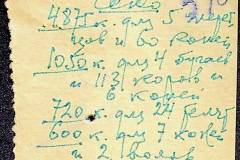 Сено
4875 к. для 5 жереб
цов и 60 коней
1050 к. для 4 бугаев
и 113 коров и
6 коней
720 к. для 24 телят
600 к. для 7 коней
и 2 волов